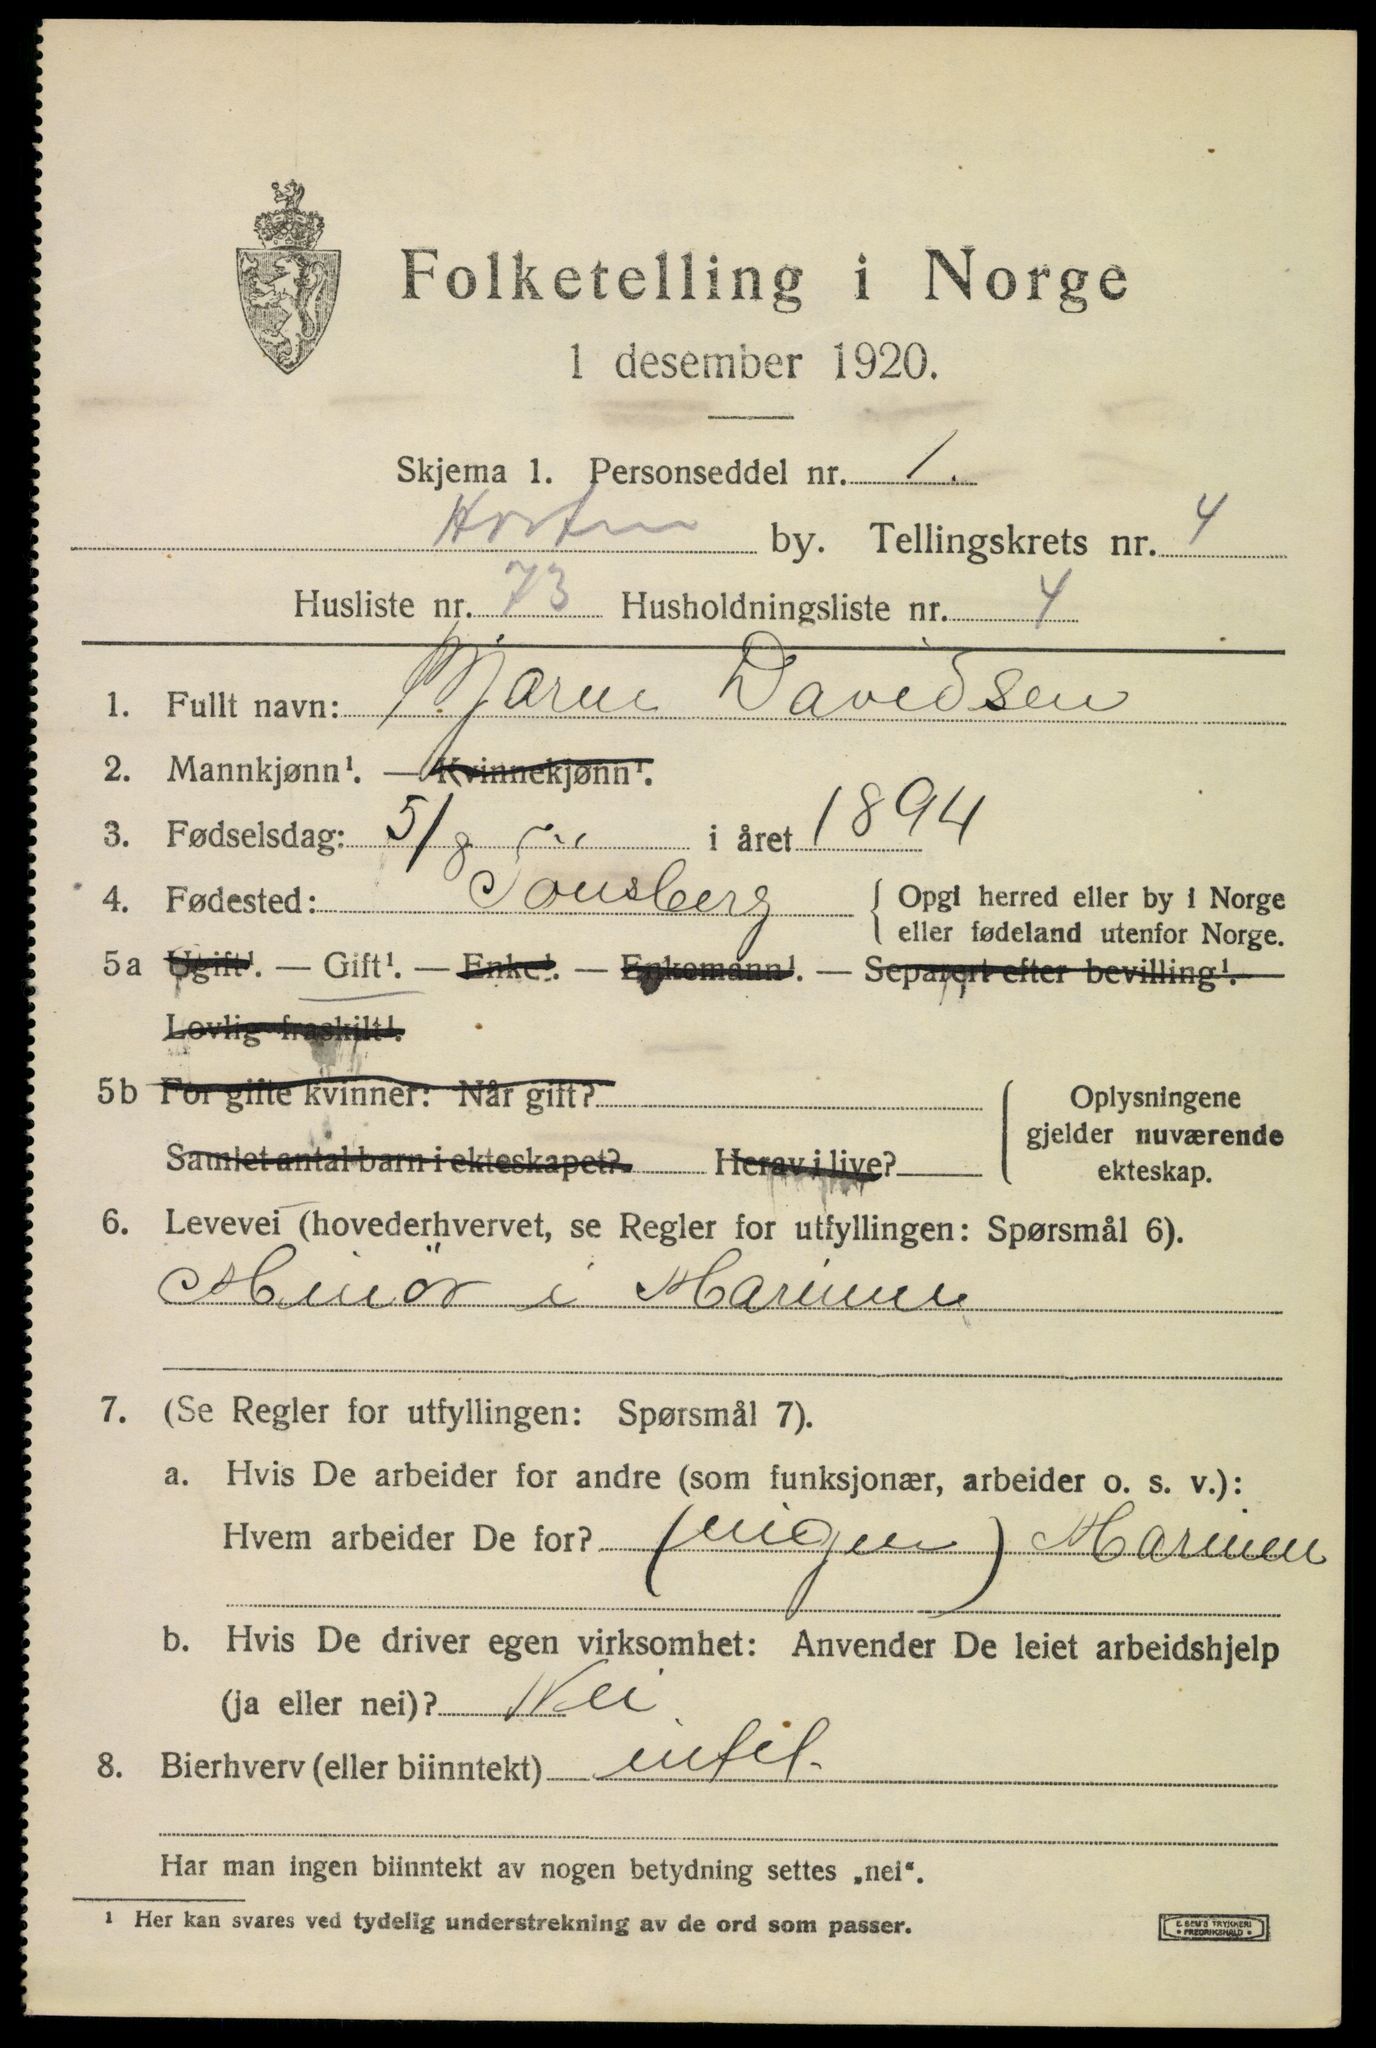 Folketelling i Norge
1 desember 1920.
Skjema 1. Personseddel nr. 1.
Horten by. Tellingskrets nr. 4
Husliste nr. 73 Husholdningsliste nr. 4
1. Fullt navn: Bjarne Davidsen
2. Mannkjønn¹. — Kvinnekjønn¹.
3. Fødselsdag: 5/8 i året 1894
4. Fødested: Tönsberg { Opgi herred eller by i Norge
eller fødeland utenfor Norge.
5a Ugift¹. — Gift¹. — Enke¹. — Enkemann¹. — Separert efter bevilling¹. —
Lovlig fraskilt¹.
5b For gifte kvinner: Når gift?
Samlet antal barn i ekteskapet? Herav i live?
{ Oplysningene
gjelder nuværende
ekteskap.
6. Levevei (hovederhvervet, se Regler for utfyllingen: Spørsmål 6).
Minör i Marinen
7. (Se Regler for utfyllingen: Spørsmål 7).
a. Hvis De arbeider for andre (som funksjonær, arbeider o. s. v.):
Hvem arbeider De for? (nigen) Marinen
b. Hvis De driver egen virksomhet: Anvender De leiet arbeidshjelp
(ja eller nei)? Nei
8. Bierhverv (eller biinntekt) intet.
Har man ingen biinntekt av nogen betydning settes „nei“.
¹ Her kan svares ved tydelig understrekning av de ord som passer.
E. SEM'S TRYKKERI
• FREDRIKSHALD •